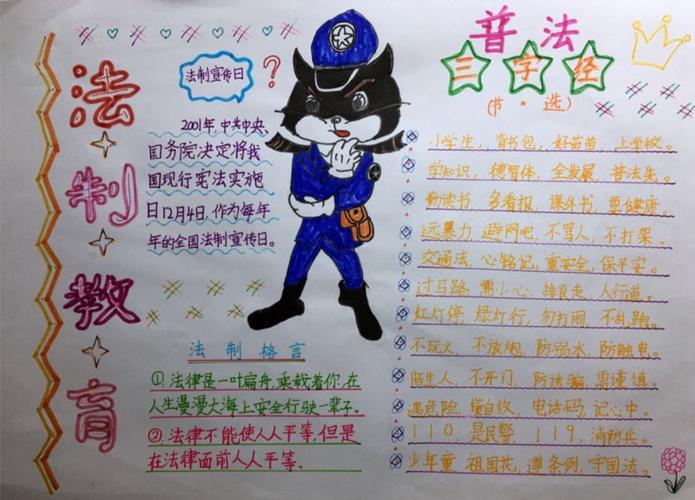 法制教育
法制宣传日
？
2001年,中共中央,
国务院决定将我
国现行宪法实施
日12月4日,作为每年
年的全国法制宣传日。
法制格言
①.法律是一叶扁舟,乘载着你,在
人生漫漫大海上安全行驶一辈子。
②.法律不能使人人平等,但是
在法律面前人人平等。
普法
三字经
(节·选)
小学生,背书包,好苗苗,上学校。
学知识,德智体,全发展,普法先。
勤读书,多看报,课外书,要健康。
远暴力,避网吧,不骂人,不打架。
交通法,心铭记,重安全,保平安。
过马路,需小心,排良走,人行道。
红灯停,绿灯行,勿打闹,不乱跑。
不玩火,不放炮,防溺水,防触电。
陌生人,不开门,防诱骗,需谨慎。
遇危险,懂自救,电话码,记心中。
110,是民警,119,消防兵。
少年童,祖国花,遵条例,守国法。